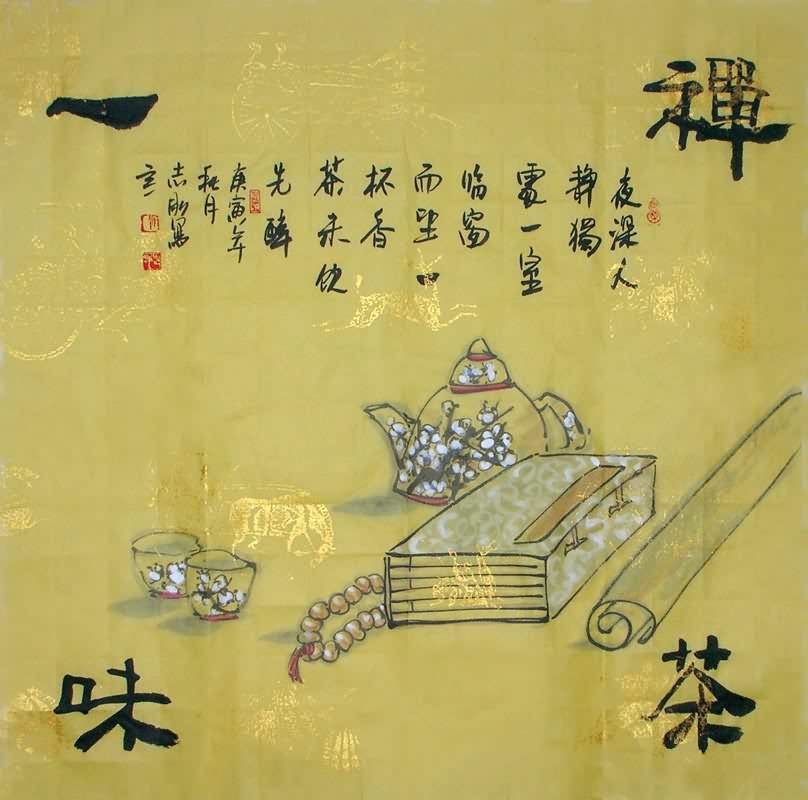 禪
茶
一
味
夜深人
靜獨
處一室
临窗
而坐一
杯香
茶未饮
先醉
庚寅年
秋月
志刚寫